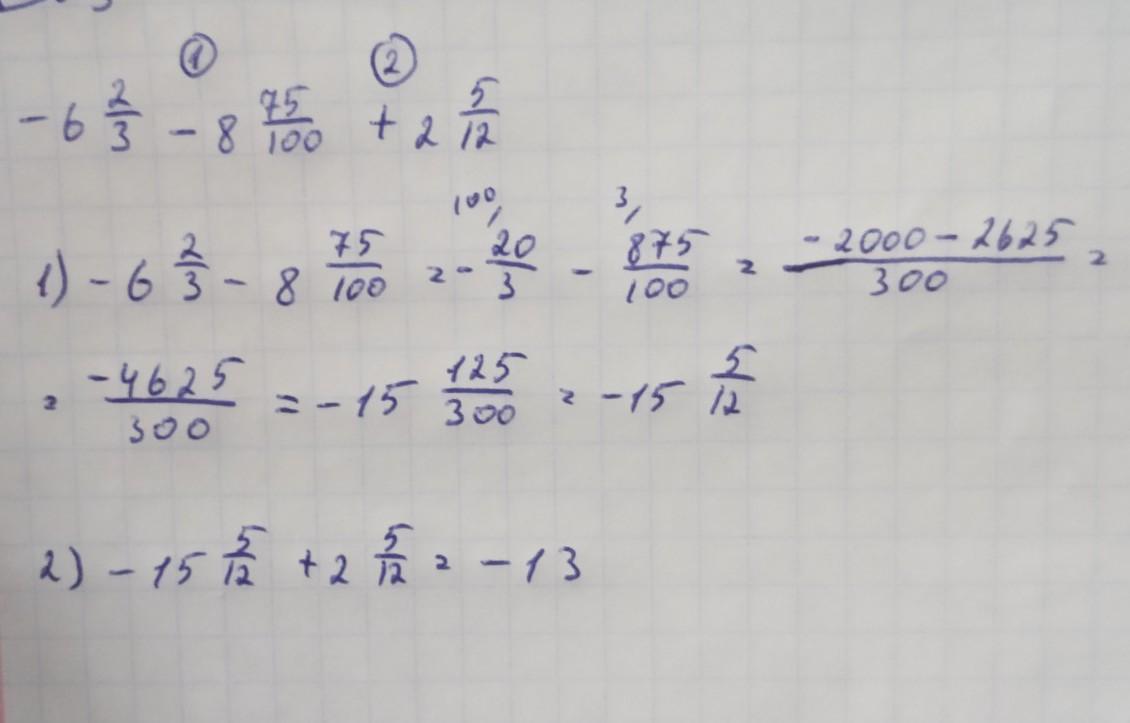 ① ②
- 6 2/3 - 8 75/100 + 2 5/12
100, 3,
1) - 6 2/3 - 8 75/100 = - 20/3 - 875/100 = -2000 - 2625/300 =
= -4625/300 = - 15 125/300 = - 15 5/12
2) - 15 5/12 + 2 5/12 = - 13